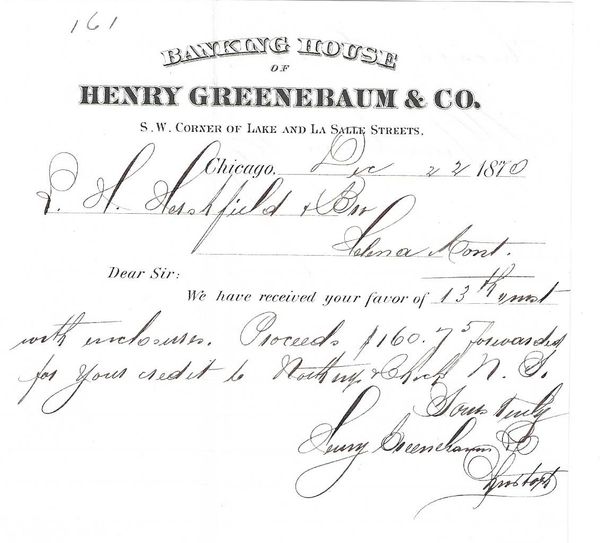 161
BANKING HOUSE
OF
HENRY GREENEBAUM & CO.
S. W. CORNER OF LAKE AND LA SALLE STREETS.
Chicago, Dec 22 1870
L. H. Hershfield & Bro
Helena Mont.
Dear Sir:
We have received your favor of 13th inst
with enclosures. Proceeds $160.75 forwarded
for your credit to Northrup & Chick N. Y.
Yours truly
Henry Greenebaum &